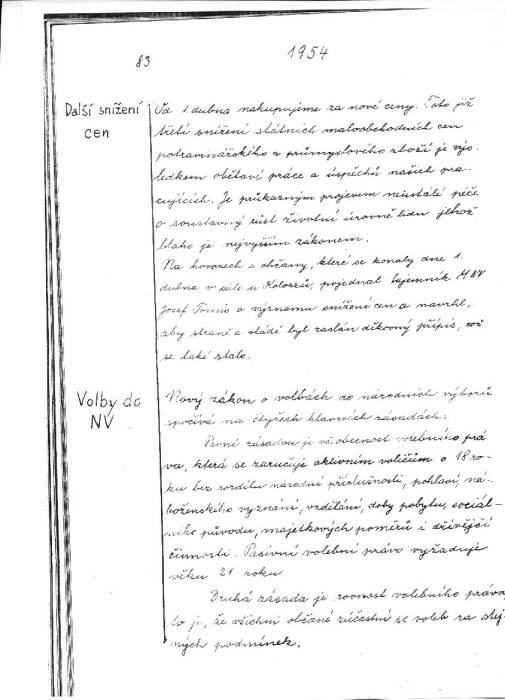 83
1954
Další snížení
cen
Od 1. dubna nakupujeme za nové ceny. Toto již
třetí snížení státních maloobchodních cen
potravinářského a průmyslového zboží je výs-
ledkem obětavé práce a úspěchů našich pra-
cujících. Je průkazným projevem neustálé péče
o soustavný růst životní úrovně lidu jehož
blaho je nejvyšším zákonem.
Na hovorech s občany, které se konaly dne 1.
dubna v sále u Kolozsů, pojednal tajemník MNV
Josef Tomis o významu snížení cen a navrhl,
aby straně a vládě byl zaslán děkovný přípis, což
se také stalo.
Volby do
NV
Nový zákon o volbách do národních výborů
spočívá na čtyřech hlavních zásadách:
První zásadou je všeobecnost volebního prá-
va, která se zaručuje aktivním voličům o 18 ro-
ku bez rozdílu národní příslušnosti, pohlaví, ná-
boženského vyznání, vzdělání, doby pobytu, sociál-
ního původu, majetkových poměrů i dřívější
činnosti. Pasivní volební právo vyžaduje
věku 21 roku.
Druhá zásada je rovnost volebního práva,
to je, že všichni občané zúčastní se voleb za stej-
ných podmínek.